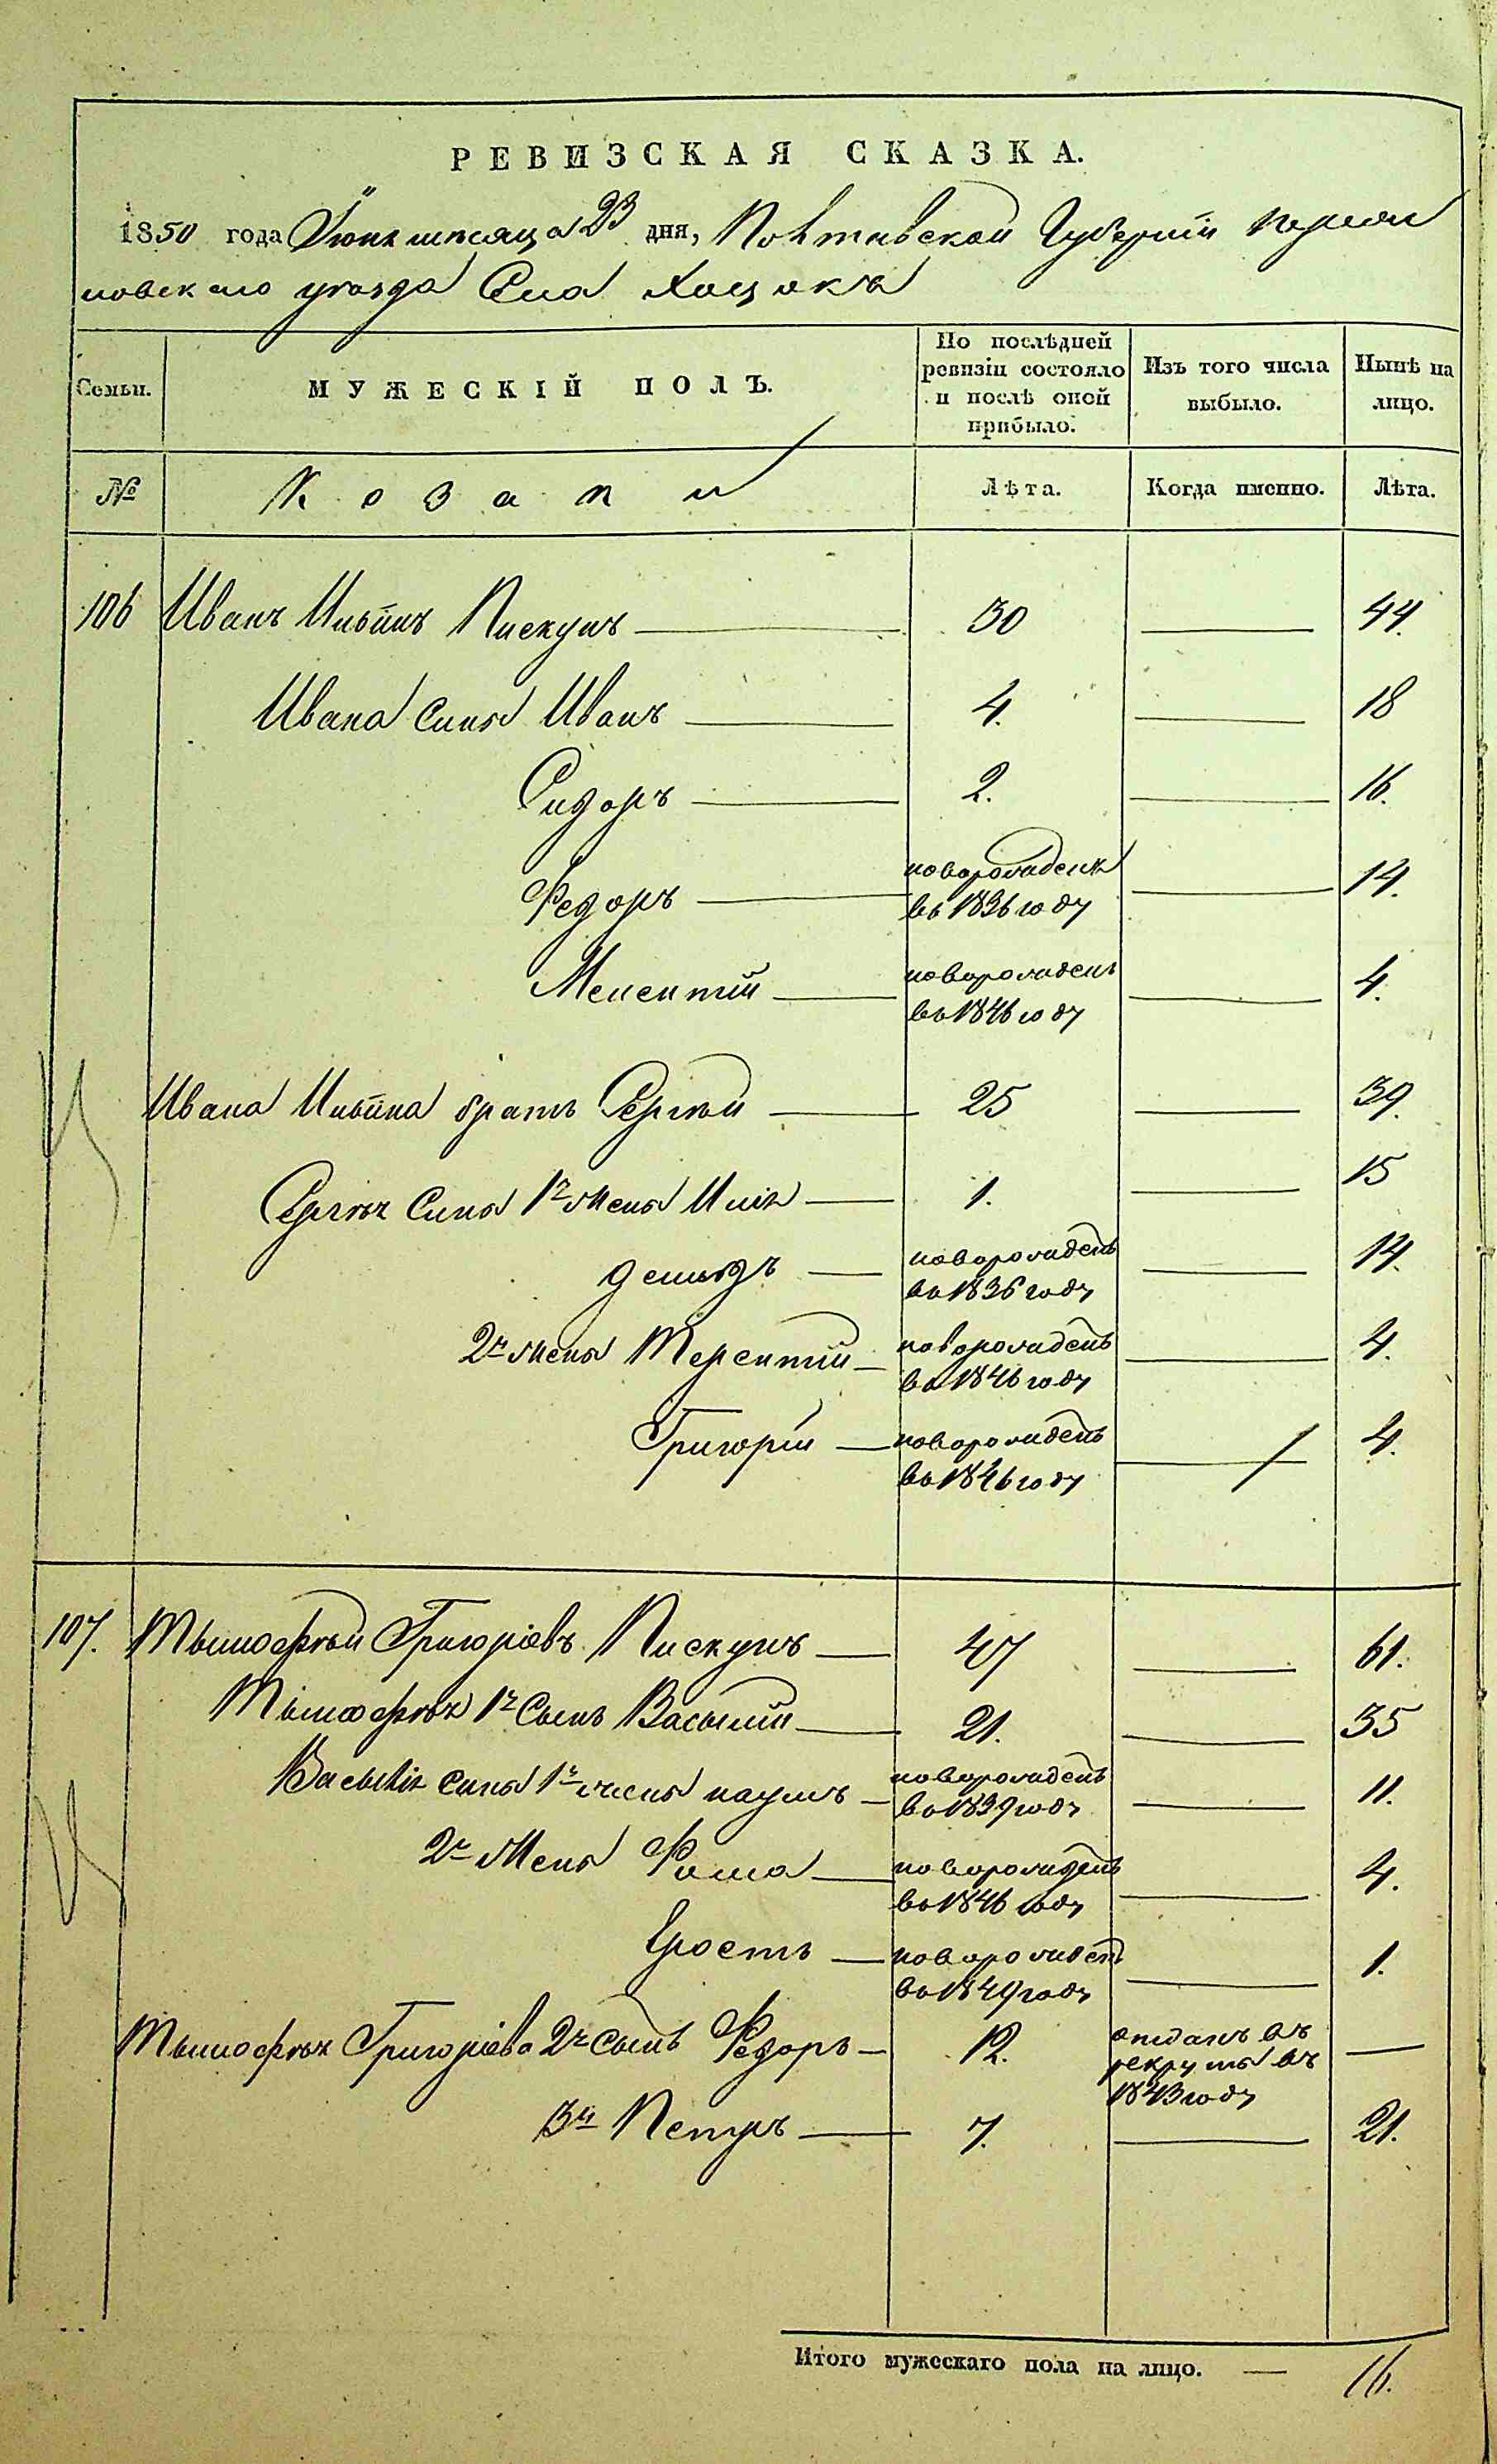 РЕВИЗСКАЯ СКАЗКА.
1850 года Іюня мѣсяца 23 дня, Полтавской Губерніи Перея
повскаго уезда Села Хоцокъ
Семьи.
МУЖЕСКІЙ ПОЛЪ.
По послѣдней ревизіи состояло и послѣ оной прибыло.
Изъ того числа выбыло.
Нынѣ на лицо.
№ Козаки Лѣта. Когда именно. Лѣта.
106 Иванъ Ильинъ Пискунъ 30 44.
Ивана сины Иванъ 4. 18
Сидоръ 2. 16.
новорожденъ
Федоръ 14.
въ 1836 году
новорожденъ
Мелентій 4.
въ 1846 году
Ивана Ильина братъ Сергѣй 25 39.
Сергѣя Сины 1й жены Илія 1. 15
новорожденъ
Демидъ 14.
въ 1836 году
новорожденъ
2й жены Терентій 4.
въ 1846 году
Григорій новорожденъ 4.
въ 1846 году
107. Тымофѣй Григоріевъ Пискунъ 47 61.
Тымофѣя 1й Сынъ Василій 21. 35
новорожденъ
Василія сины 1й жены Наумъ 11.
въ 1839 году
2й жены Фома новорожденъ 4.
въ 1846 году
новорожденъ 1.
въ 1849 году
Тымофѣя Григоріева 2й сынъ Федоръ 12. отданъ въ
рекруты въ
1843 году
3й Петръ 7. 21.
Итого мужескаго пола на лицо. — 16.